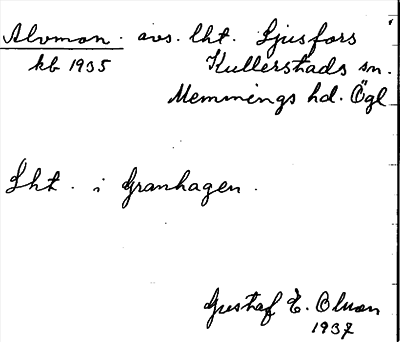 Alvmon. avs. lht. Ljusfors
kb 1935 Kullerstads sn.
Memmings hd. Ögl
Lht. i Granhagen.
Gustaf E. Olman
1937